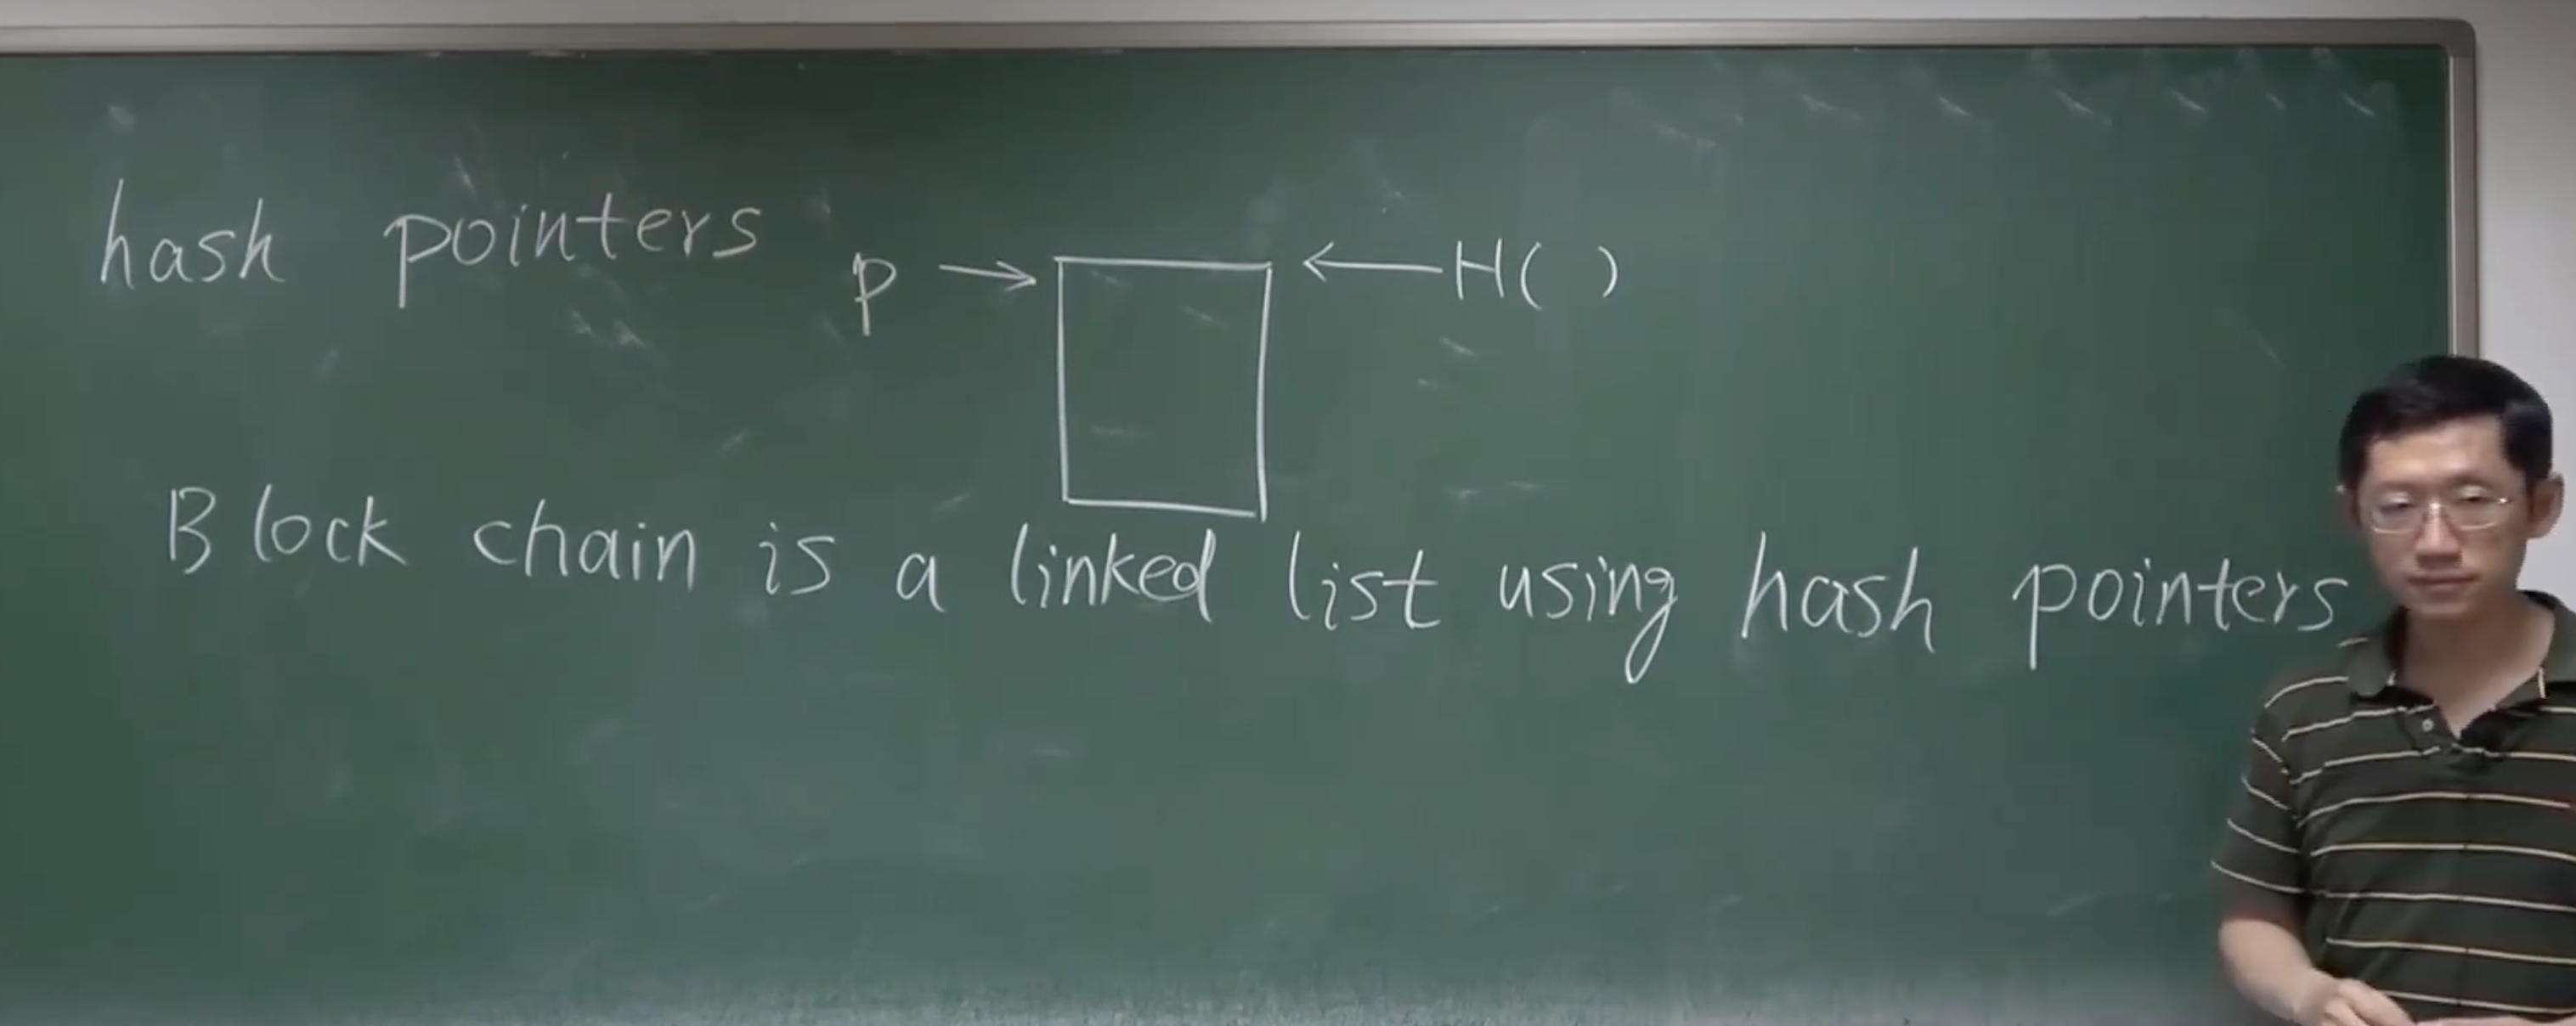 hash pointers
p → ← H( )
Block chain is a linked list using hash pointers